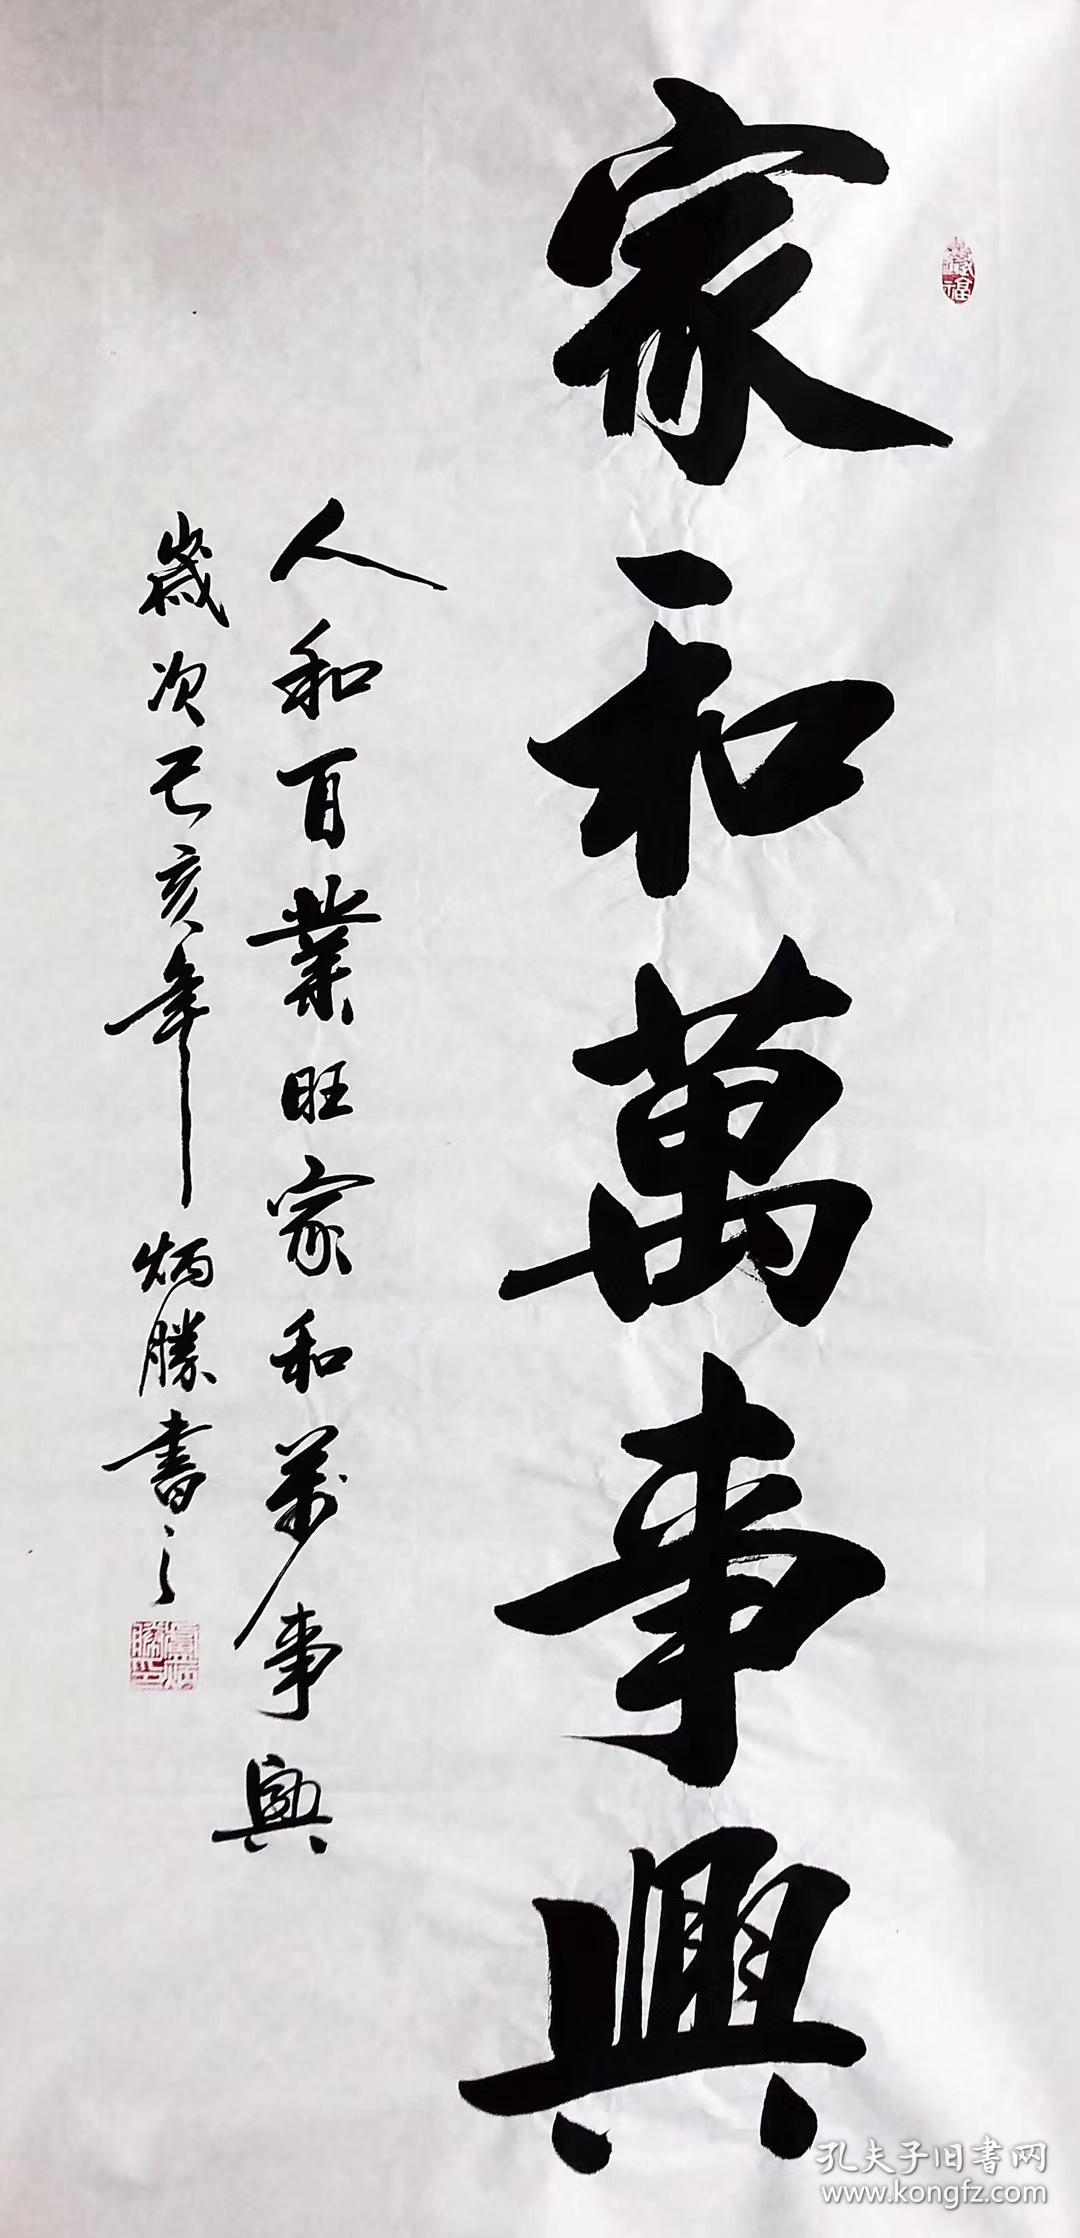 家和萬事興
人和百業旺家和萬事興
歲次己亥年炳勝書之
孔夫子旧书网
www.kongfz.com